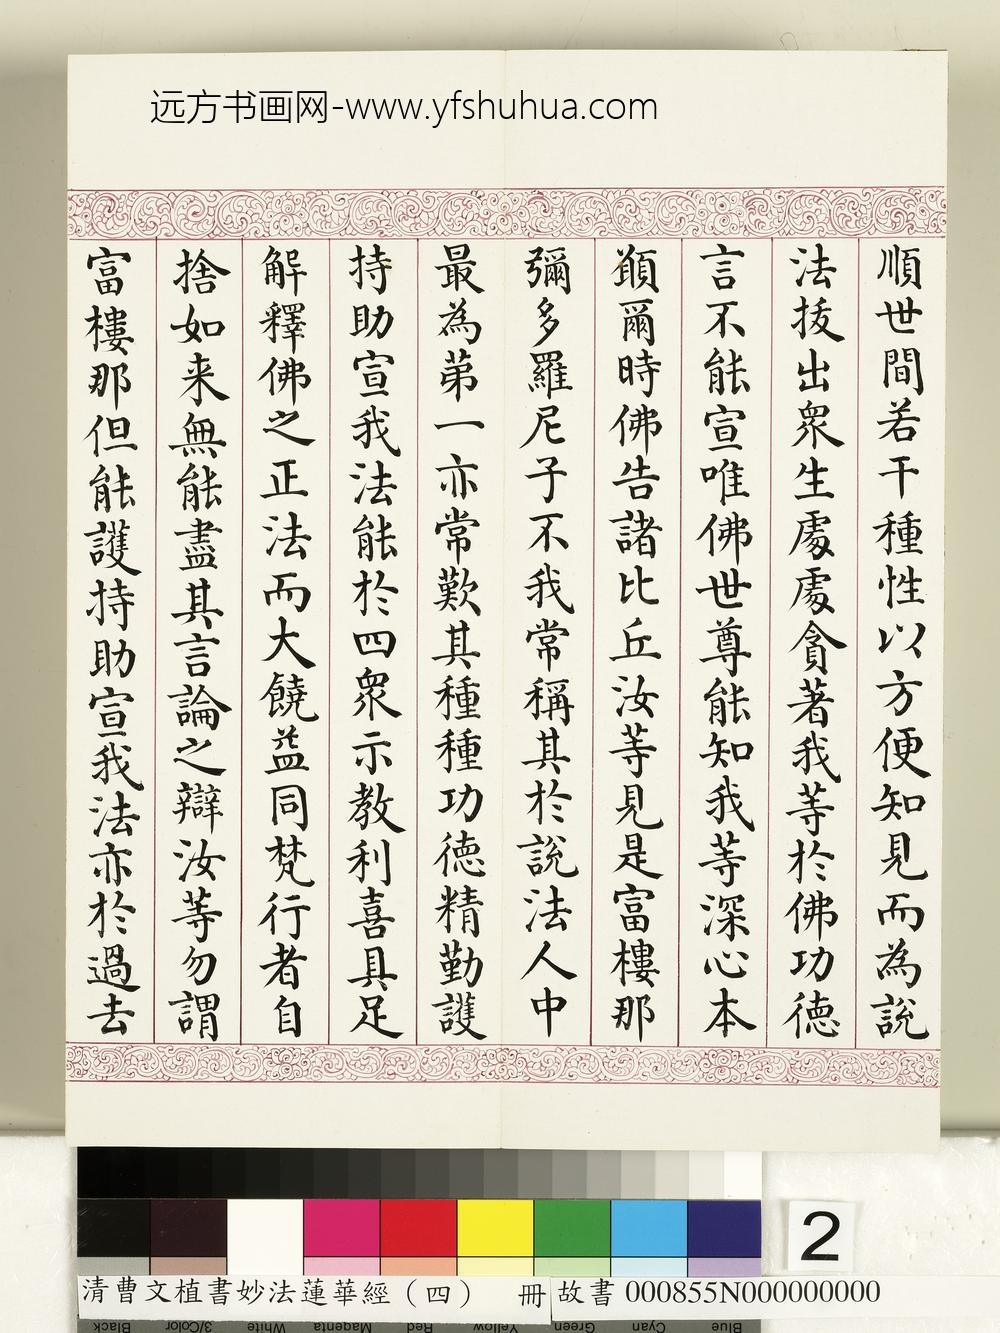 远方书画网-www.yfshuhua.com
順世間若干種性以方便知見而為說
法拔出眾生處處貪著我等於佛功德
言不能宣唯佛世尊能知我等深心本
願爾時佛告諸比丘汝等見是富樓那
彌多羅尼子不我常稱其於說法人中
最為第一亦常歎其種種功德精勤護
持助宣我法能於四眾示教利喜具足
解釋佛之正法而大饒益同梵行者自
捨如来無能盡其言論之辯汝等勿謂
富樓那但能護持助宣我法亦於過去
2
清曹文植書妙法蓮華經（四） 冊 故書 000855N000000000
Black 3/Color White Magenta Red Yellow Green Cyan Blue